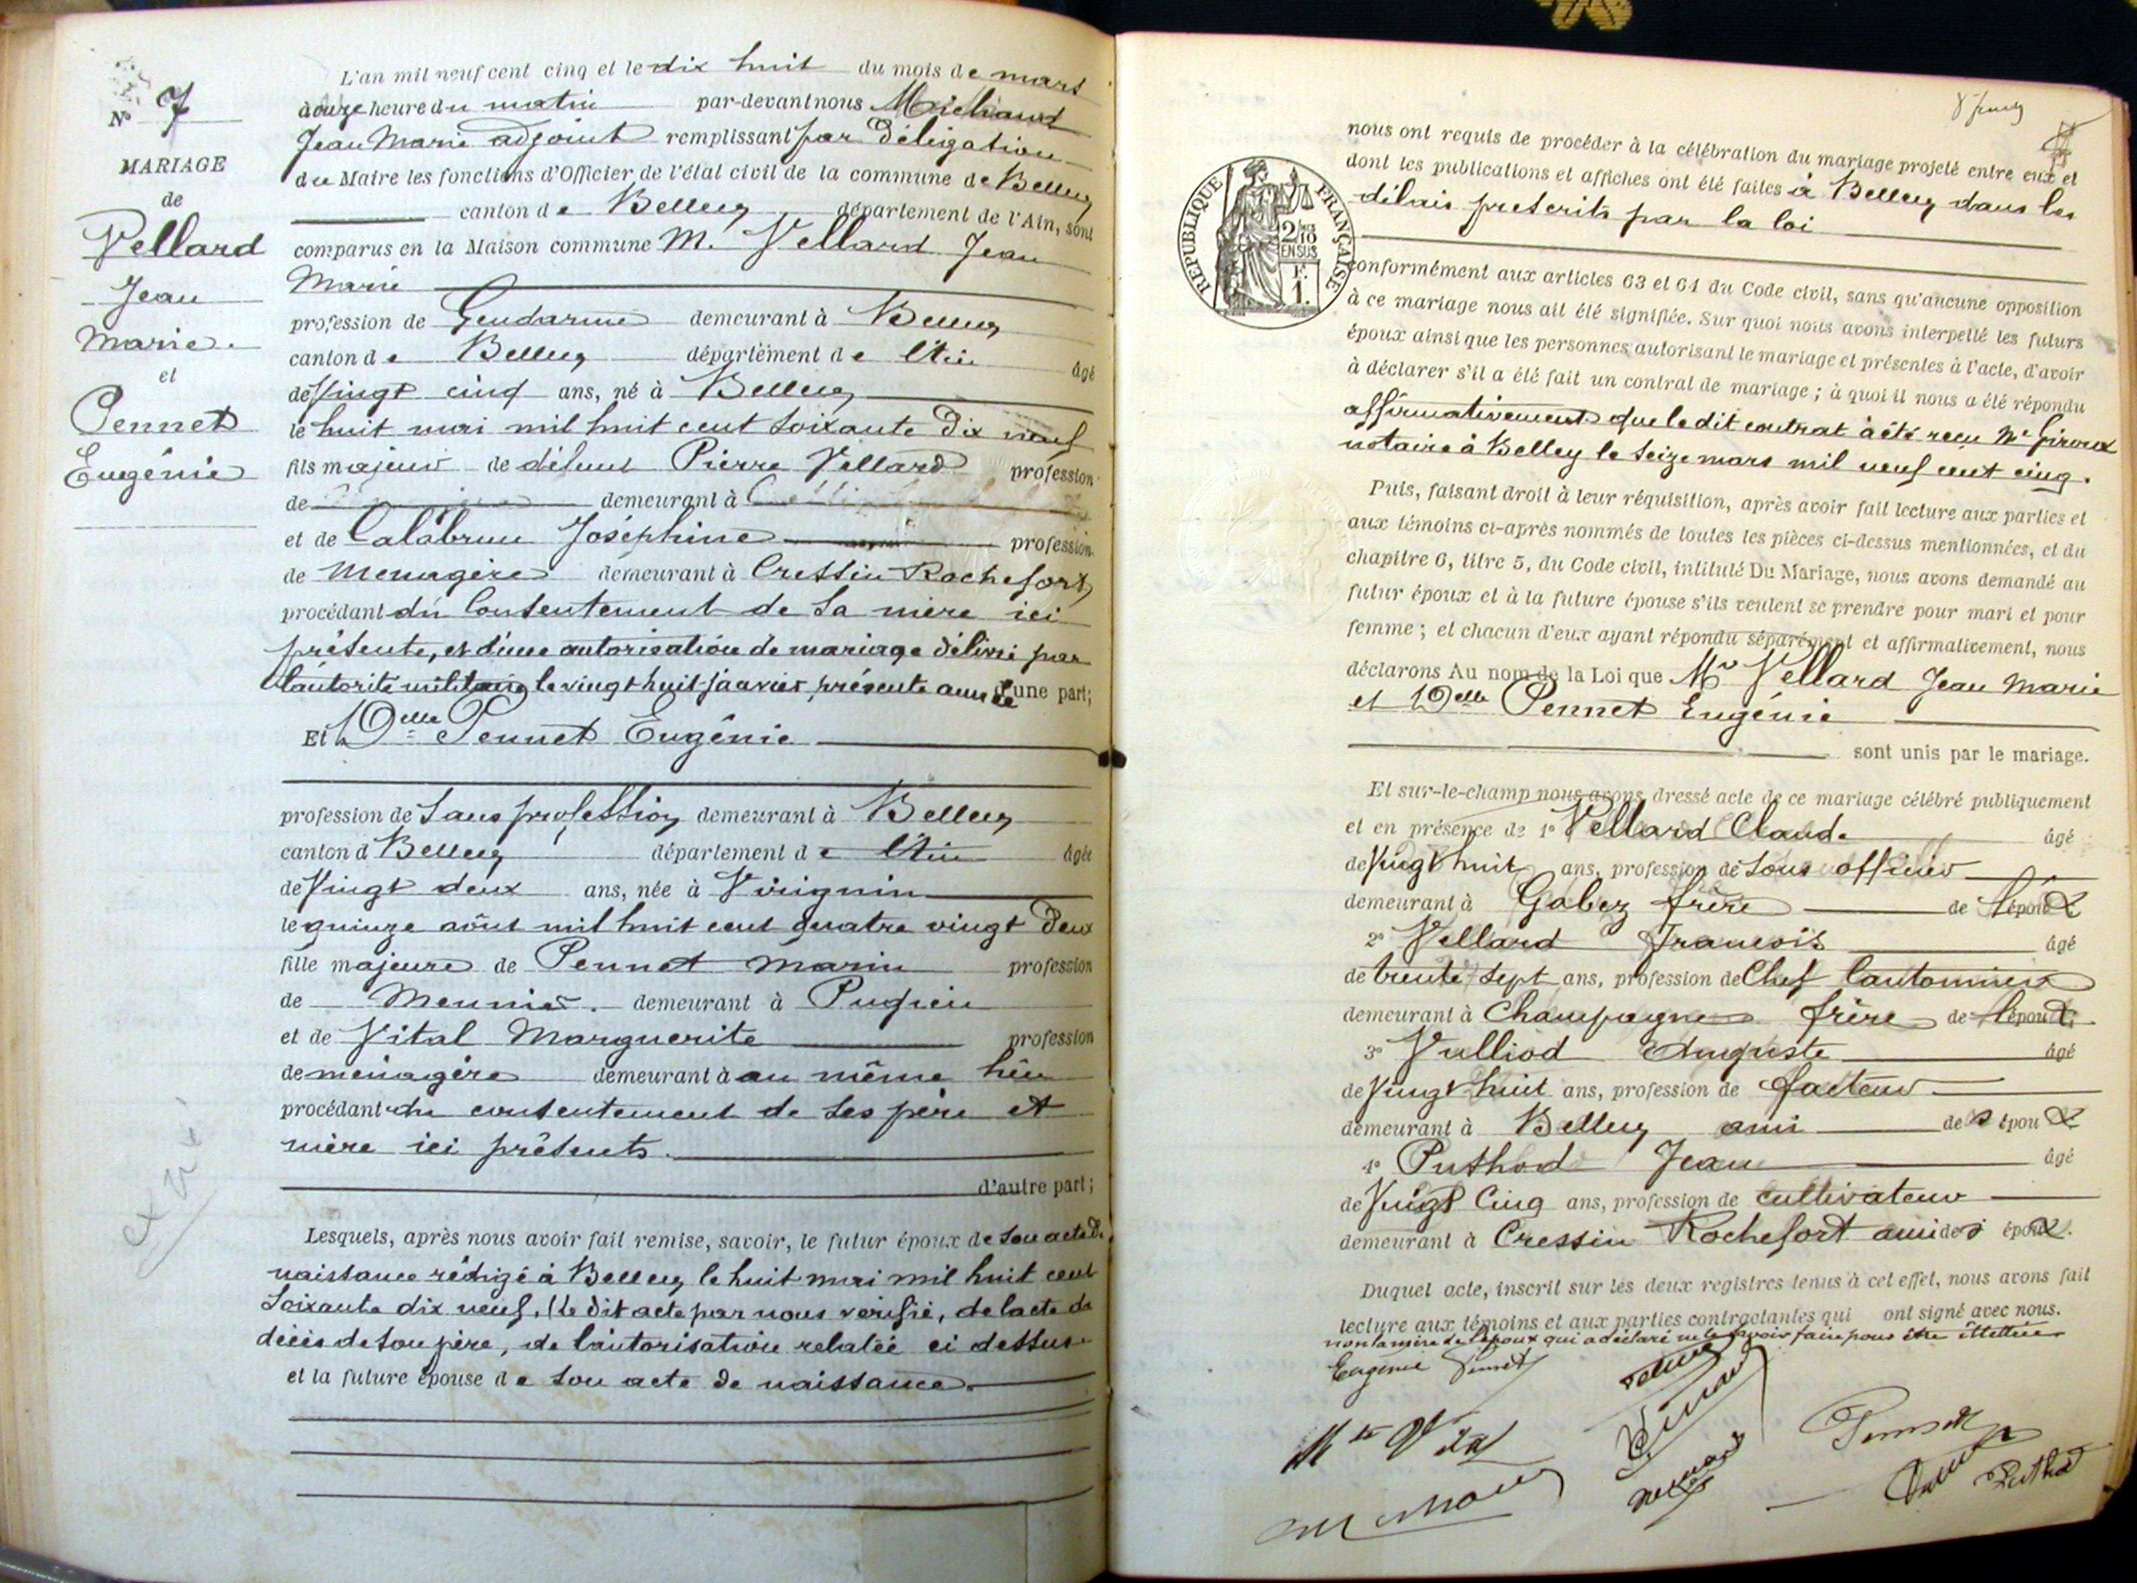 L'an mil neuf cent cinq et le dix huit du mois de mars
à onze heure du matin par-devant nous Michaud
Jean Marie adjoint remplissant par délégation
du Maire les fonctions d'Officier de l'état civil de la commune de Belley
canton de Belley département de l'Ain, sont
comparus en la Maison commune M. Vellard Jean
Marie
profession de Gendarme demeurant à Belley
canton de Belley département de l'Ain âgé
de Vingt cinq ans, né à Belley
le huit mai mil huit cent soixante dix neuf
fils majeur de défunt Pierre Vellard profession
de demeurant à
et de Calabrun Joséphine profession
de Menagère demeurant à Cressin Rochefort
procédant du Consentement de sa mère ici
présente, et d'une autorisation de mariage délivré par
l'autorité militaire le vingt huit janvier, présente année d'une part;
Et Delle Pennet Eugénie
profession de Sans profession demeurant à Belley
canton d Belley département de l'Ain âgée
de Vingt deux ans, née à Virignin
le quinze août mil huit cent quatre vingt deux
fille majeure de Pennet Marin profession
de Meunier. demeurant à Pugieu
et de Vital Marguerite profession
de ménagère demeurant à au même lieu
procédant du consentement de ses père et
mère ici présents.
d'autre part;
Lesquels, après nous avoir fait remise, savoir, le futur époux de son acte de
naissance rédigé à Belley le huit mai mil huit cent
soixante dix neuf. (Le dit acte par nous vérifié, de l'acte de
décès de son père, de l'autorisation relatée ci dessus
et la future épouse de son acte de naissance.
N° 7
MARIAGE
de
Vellard
Jean
Marie.
et
Pennet
Eugénie
nous ont requis de procéder à la célébration du mariage projeté entre eux et
dont les publications et affiches ont été faites à Belley dans les
délais prescrits par la loi
RÉPUBLIQUE FRANÇAISE
2/10
EN SUS
F.
1.
conformément aux articles 63 et 64 du Code civil, sans qu'aucune opposition
à ce mariage nous ait été signifiée. Sur quoi nous avons interpellé les futurs
époux ainsi que les personnes autorisant le mariage et présentes à l'acte, d'avoir
à déclarer s'il a été fait un contrat de mariage ; à quoi il nous a été répondu
affirmativement que le dit contrat à été reçu Me
notaire à Belley le seize mars mil neuf cent cinq.
Puis, faisant droit à leur réquisition, après avoir fait lecture aux parties et
aux témoins ci-après nommés de toutes les pièces ci-dessus mentionnées, et du
chapitre 6, titre 5, du Code civil, intitulé Du Mariage, nous avons demandé au
futur époux et à la future épouse s'ils veulent se prendre pour mari et pour
femme ; et chacun d'eux ayant répondu séparément et affirmativement, nous
déclarons Au nom de la Loi que Mr Vellard Jean Marie
et Delle Pennet Eugénie
sont unis par le mariage.
Et sur-le-champ nous avons dressé acte de ce mariage célébré publiquement
et en présence de 1° Vellard Claude âgé
de Vingt huit ans, profession de Sous officier
demeurant à Gabez frère de l'époux
2° Vellard François âgé
de trente sept ans, profession de Chef Cantonnier
demeurant à Champagne frère de l'époux
3° Vulliod Auguste âgé
de Vingt huit ans, profession de facteur
demeurant à Belley ami des époux
4° Puthod Jean âgé
de Vingt Cinq ans, profession de cultivateur
demeurant à Cressin Rochefort ami des époux.
Duquel acte, inscrit sur les deux registres tenus à cet effet, nous avons fait
lecture aux témoins et aux parties contractantes qui ont signé avec nous.
non la mère de l'époux qui a déclaré ne le savoir faire pour être illettrée
Eugénie Pennet
Mte Vital
Pennet
Puthod
Michaud